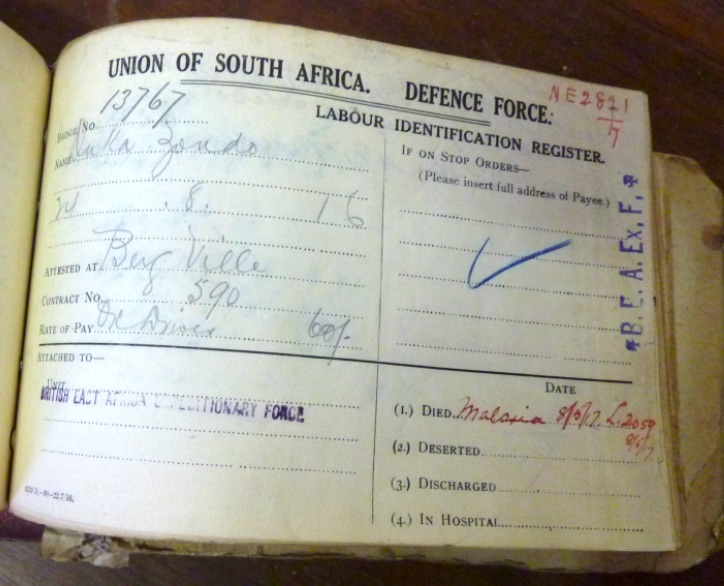 UNION OF SOUTH AFRICA. DEFENCE FORCE.
NE2821
17
LABOUR IDENTIFICATION REGISTER.
BADGE No. 13767
NAME Zondo
8. 16
ATTESTED AT Berg Ville
CONTRACT No. 590
RATE OF PAY Driver 60/-
IF ON STOP ORDERS—
(Please insert full address of Payee.)
B. E. A. Ex. F.
ATTACHED TO—
Unit
BRITISH EAST AFRICA EXPEDITIONARY FORCE
DATE
(1.) DIED Malaria 8/5/17 L.2059
(2.) DESERTED
(3.) DISCHARGED
(4.) IN HOSPITAL